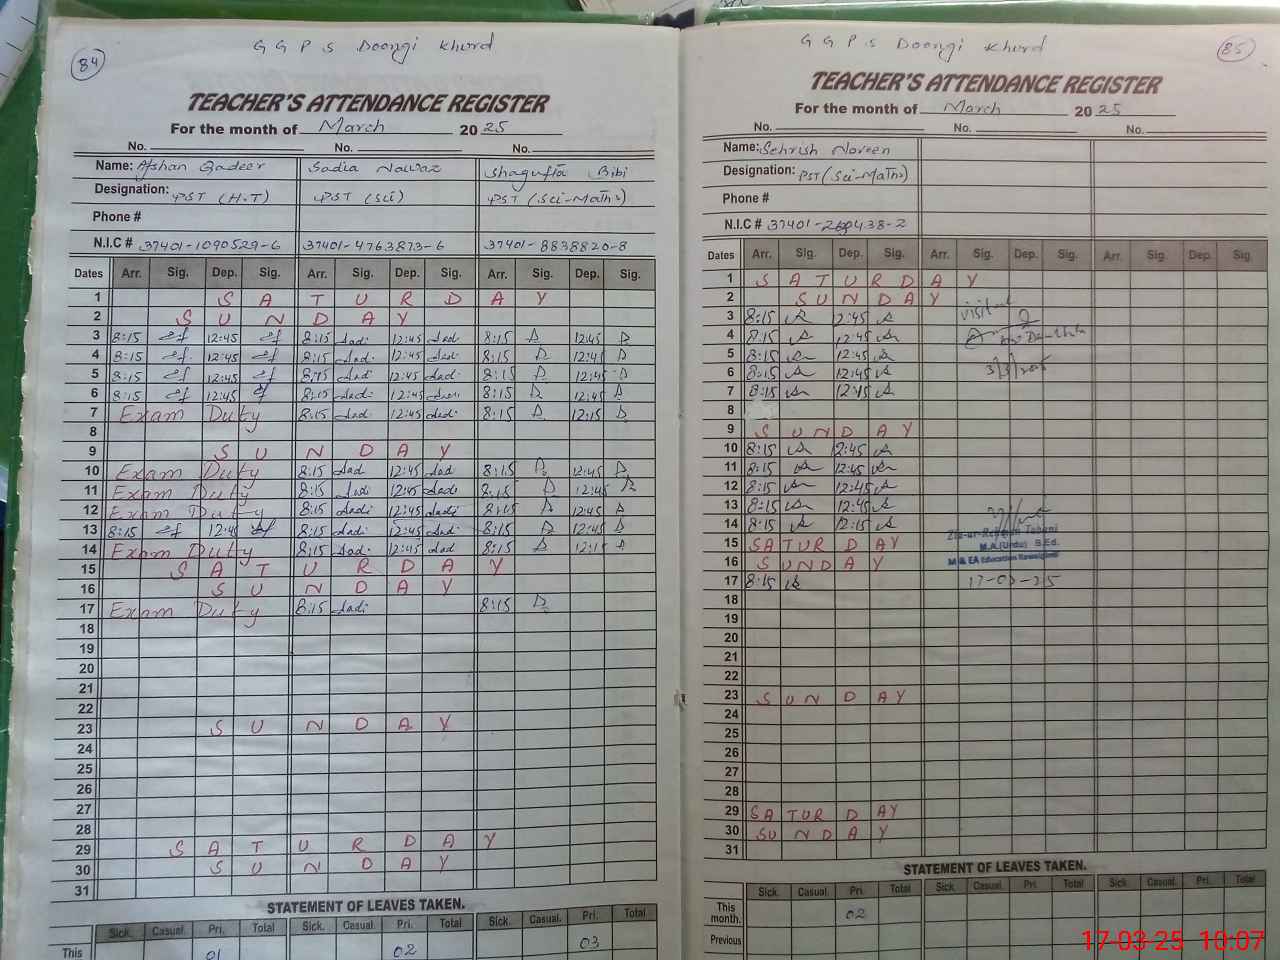 84
G G P S Doongi Khurd
TEACHER'S ATTENDANCE REGISTER
For the month of March 2025
No. No. No.
Name: Afshan Qadeer Sadia Nawaz Shagufta Bibi
Designation: PST (H.T) PST (Sci) PST (Sci-Maths)
Phone #
N.I.C # 37401-1090529-6 37401-4763873-6 37401-8838820-8
Dates Arr. Sig. Dep. Sig. Arr. Sig. Dep. Sig. Arr. Sig. Dep. Sig.
1 S A T U R D A Y
2 S U N D A Y
3 8:15 12:45 8:15 Sadi 12:45 Sad 8:15 12:45
4 8:15 12:45 8:15 Sadi 12:45 Sadi 8:15 12:45
5 8:15 12:45 8:15 Sadi 12:45 Sadi 8:15 12:45
6 8:15 12:45 8:15 Sadi 12:45 8:15 12:45
7 Exam Duty 8:15 Sadi 12:45 Sadi 8:15 12:15
8
9 S U N D A Y
10 Exam Duty 8:15 Sad 12:45 Sad 8:15 12:45
11 Exam Duty 8:15 Sadi 12:45 Sadi 8:15 12:45
12 Exam Duty 8:15 Sadi 12:45 Sadi 8:15 12:45
13 8:15 12:45 8:15 Sadi 12:45 Sadi 8:15 12:45
14 Exam Duty 8:15 Sadi 12:45 Sad 8:15 12:15
15 S A T U R D A Y
16 S U N D A Y
17 Exam Duty 8:15 Sadi 8:15
18
19
20
21
22
23 S U N D A Y
24
25
26
27
28
29 S A T U R D A Y
30 S U N D A Y
31
STATEMENT OF LEAVES TAKEN.
Sick. Casual. Pri. Total Sick. Casual. Pri. Total Sick. Casual. Pri. Total
This 01 02 03
85
G G P S Doongi Khurd
TEACHER'S ATTENDANCE REGISTER
For the month of March 2025
No. No. No.
Name: Sehrish Noreen
Designation: PST (Sci-Maths)
Phone #
N.I.C #
Dates Arr. Sig. Dep. Sig. Arr. Sig. Dep. Sig. Arr. Sig. Dep. Sig.
1 S A T U R D A Y
2 S U N D A Y
3 8:15 12:45
4 8:15 12:45
5 8:15 12:45
6 8:15 12:45 3/3/2025
7 8:15 12:45
8
9 S U N D A Y
10 8:15 12:45
11 8:15 12:45
12 8:15 12:45
13 8:15 12:45
14 8:15 12:15
15 S A T U R D A Y M.A.(Urdu) B.Ed.
16 S U N D A Y M & EA Education
17 8:15 17-03-25
18
19
20
21
22
23 S U N D A Y
24
25
26
27
28
29 S A T U R D A Y
30 S U N D A Y
31
STATEMENT OF LEAVES TAKEN.
Sick. Casual. Pri. Total Sick. Casual. Pri. Total Sick. Casual. Pri. Total
This month. 02
Previous
17-03-25 10:07